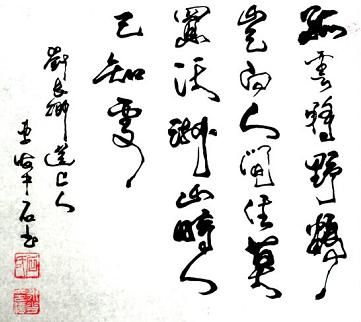 孤雲將野鶴
豈向人間住莫
買沃洲山時人
已知處
劉長卿送上人
中石书